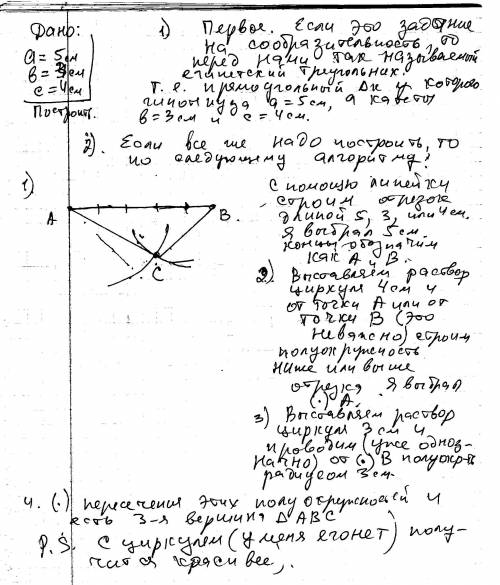 Дано:
a = 5см
в = 3см
с = 4см
Построить.
1) Первое. Если это задание
на сообразительность, то
перед нами так называемый
египетский треугольник.
Т.е. прямоугольный Δк у которого
гипотенуза a = 5см, а катеты
в = 3см и с = 4см.
2). Если все же надо построить, то
по следующему алгоритму:
1)
А
В.
С
С помощью линейки
строим отрезок
длиной 5, 3, или 4 см.
Я выбрал 5см.
концы обозначим
как А и В.
2) Выставляем раствор
циркуля 4см и
от точки А или от
точки В (это
неважно) строим
полуокружность
ниже или выше
отрезка. Я выбрал
(.) А.
3) Выставляем раствор
циркуля 3см и
проводим (уже одноз-
начно) от (.) В полуокр-ть
радиусом 3см.
4. (.) пересечения этих полуокружностей и
есть 3-я вершина ΔАВС
P.S. С циркулем (у меня его нет) полу-
чится красивее,.